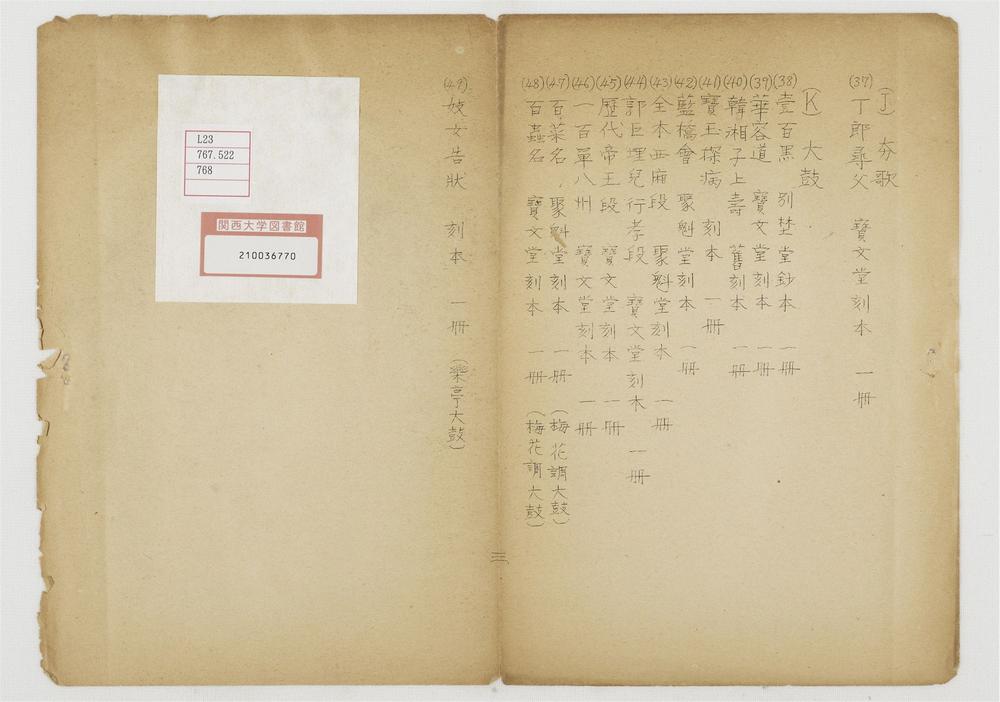 (J) 夯歌
(37) 丁郎尋父 寶文堂刻本 一冊
(K) 大鼓
(38) 壹百黑 別埜堂鈔本 一冊
(39) 華容道 寶文堂刻本 一冊
(40) 韓湘子上壽 舊刻本 一冊
(41) 寶玉探病 刻本 一冊
(42) 藍橋會 聚魁堂刻本 一冊
(43) 全本西廂段 聚魁堂刻本 一冊
(44) 郭巨埋兒行孝段 寶文堂刻本 一冊
(45) 歷代帝王段 寶文堂刻本 一冊
(46) 一百單八州 寶文堂刻本 一冊
(47) 百菜名 聚魁堂刻本 一冊 (梅花調大鼓)
(48) 百蟲名 寶文堂刻本 一冊 (梅花調大鼓)
三
(49) 妓女告狀 刻本 一冊 (樂亭大鼓)
L23
767.522
768
関西大学図書館
210036770